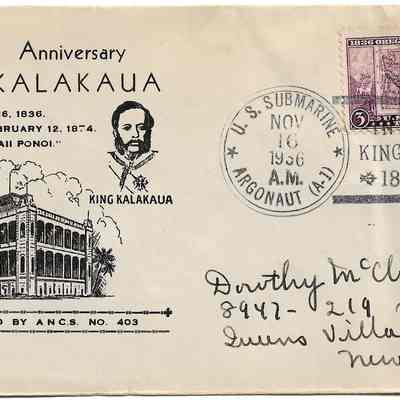 Anniversary
KALAKAUA
6, 1836.
BRUARY 12, 1874.
AII PONOI."
KING KALAKAUA
D BY A.N.C.S. NO. 403
U. S. SUBMARINE
NOV
16
1936
A.M.
ARGONAUT (A-1)
1836 ORE
3
IN
KING
18
Dorothy McCl
8947- 219
Queens Villa
New